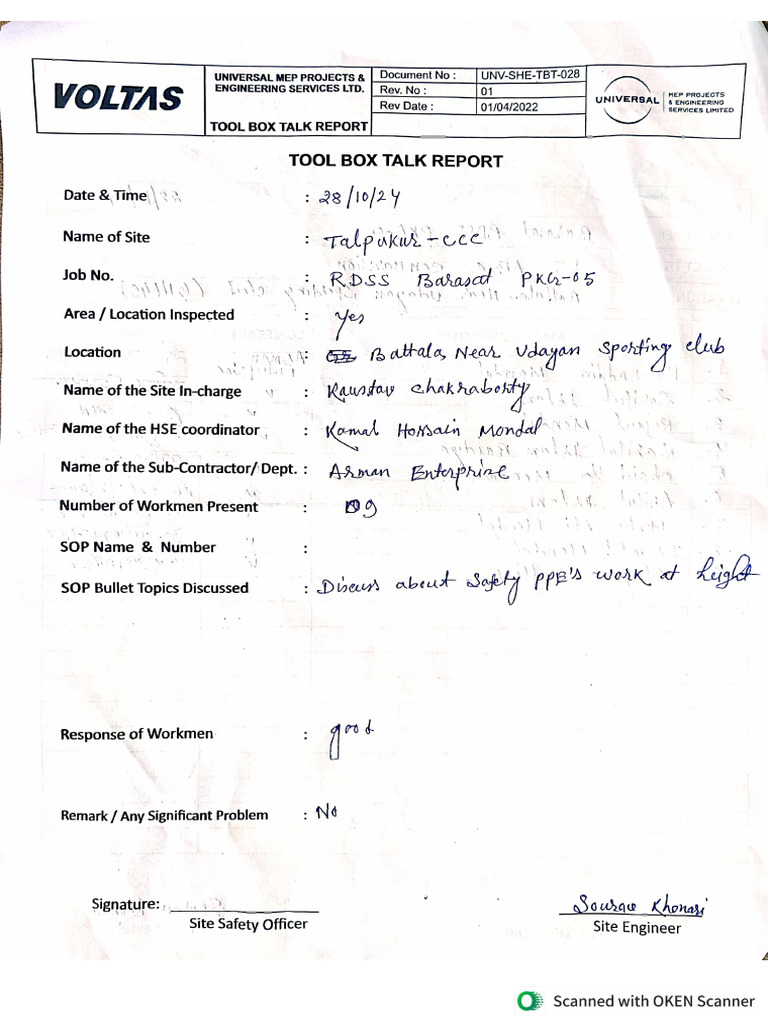 VOLTAS
UNIVERSAL MEP PROJECTS &
ENGINEERING SERVICES LTD.
TOOL BOX TALK REPORT
Document No : UNV-SHE-TBT-028
Rev. No : 01
Rev Date : 01/04/2022
UNIVERSAL
MEP PROJECTS
& ENGINEERING
SERVICES LIMITED
TOOL BOX TALK REPORT
Date & Time : 28/10/24
Name of Site : Talpukur-CCC
Job No. : RDSS Barasat PKG-05
Area / Location Inspected : Yes
Location : Battala, Near Udayan Sporting club
Name of the Site In-charge : Kaustav Chakraborty
Name of the HSE coordinator : Kamal Hossain Mondal
Name of the Sub-Contractor/ Dept. : Arman Enterprise
Number of Workmen Present : 09
SOP Name & Number :
SOP Bullet Topics Discussed : Discuss about Safety PPE's work at height
Response of Workmen : good
Remark / Any Significant Problem : No
Signature:
Site Safety Officer
Sourav Khonari
Site Engineer
Scanned with OKEN Scanner